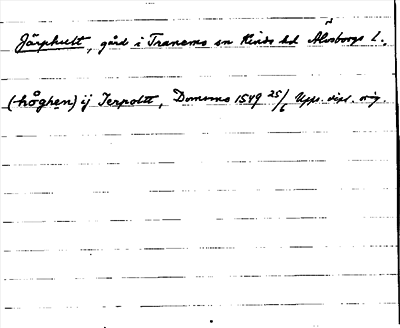 Järphult, gård i Tranemo sn Kinds hd Älvsborgs l.
(-höghen) ij Jerpoltt, Domsmo 1549 25/6 Upps. dipl. orig.